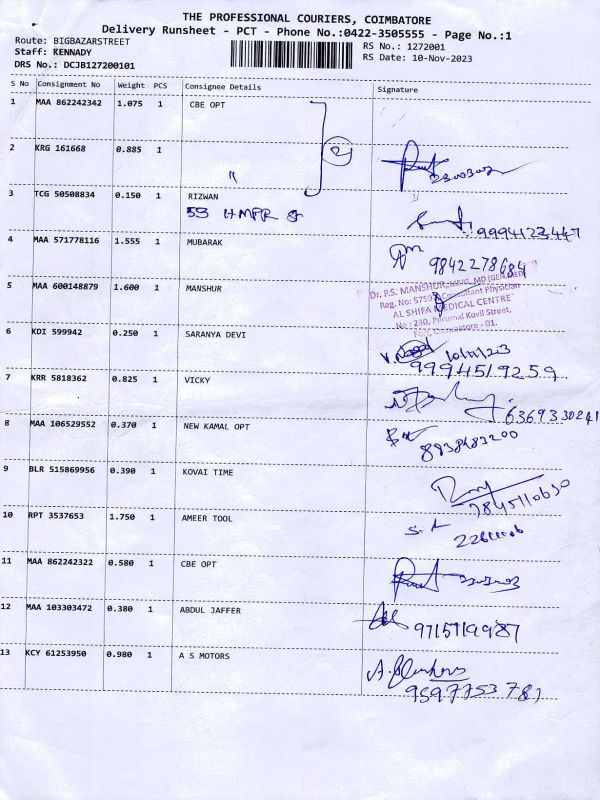 THE PROFESSIONAL COURIERS, COIMBATORE
Delivery Runsheet - PCT - Phone No.:0422-3505555 - Page No.:1
Route: BIGBAZARSTREET
RS No.: 1272001
Staff: KENNADY
RS Date: 10-Nov-2023
DRS No.: DCJB127200101
S No Consignment No Weight PCS Consignee Details Signature
1 MAA 862242342 1.075 1 CBE OPT
2
2 KRG 161668 0.885 1
"
3 TCG 50508834 0.150 1 RIZWAN
53 HMPR St
9994123447
4 MAA 571778116 1.555 1 MUBARAK
9842278684
5 MAA 600148879 1.600 1 MANSHUR
Dr. P.S. MANSHUR, MBBS, MD (GEN.MED)
Consultant Physician
AL SHIFA MEDICAL CENTRE
No : 230, Perumal Kovil Street,
Coimbatore - 01.
6 KDI 599942 0.250 1 SARANYA DEVI
10/11/23
9994519259
7 KRR 5818362 0.825 1 VICKY
6369330241
8 MAA 106529552 0.370 1 NEW KAMAL OPT
9 BLR 515869956 0.390 1 KOVAI TIME
7845110630
10 RPT 3537653 1.750 1 AMEER TOOL
11 MAA 862242322 0.580 1 CBE OPT
12 MAA 103303472 0.380 1 ABDUL JAFFER
13 KCY 61253950 0.980 1 A S MOTORS